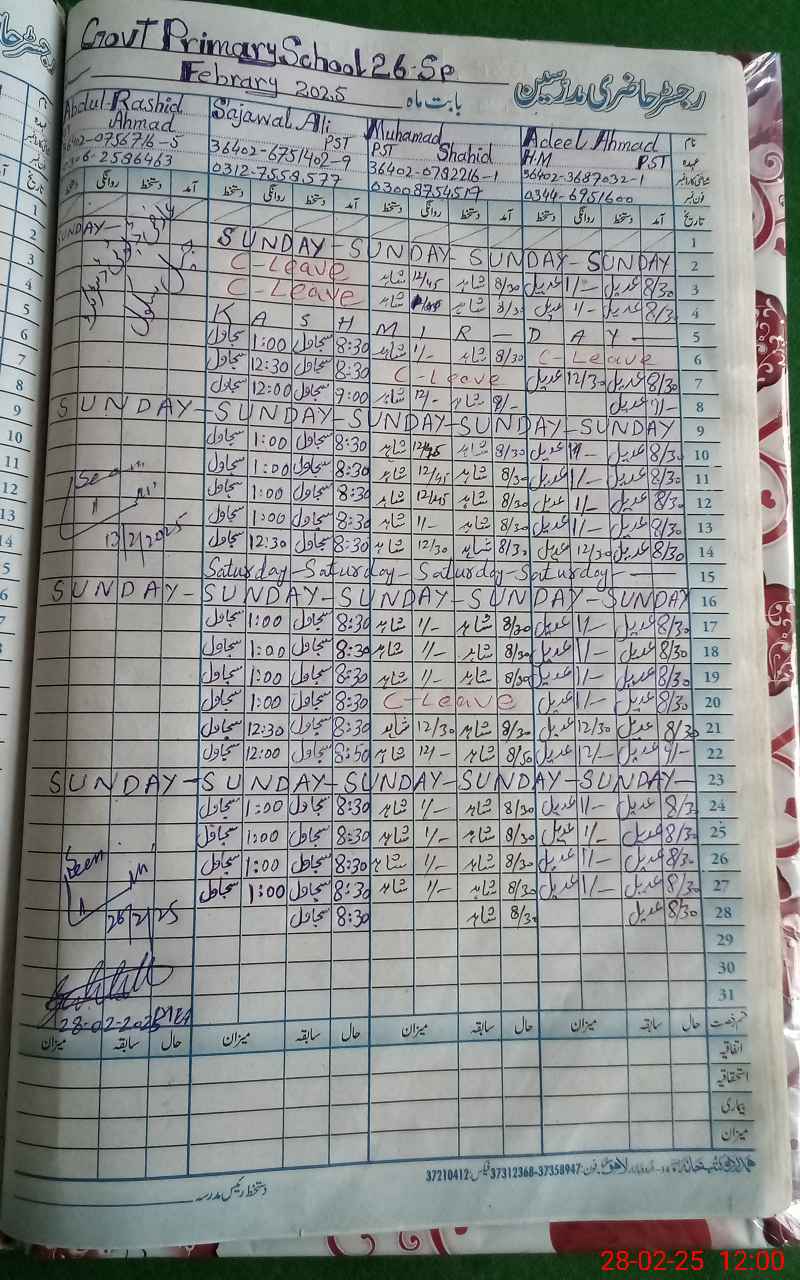 Govt Primary School 26-Sp
Febrary 2025
بابت ماہ
رجسٹر حاضری مدرسین
Abdul-Rashid
Ahmad
36402-0756716-5
Sajawal Ali
PST
36402-6751402-9
0312-7559577
Muhamad
PST Shahid
36402-0782216-1
03008754517
Adeel Ahmad
H.M PST
36402-3687032-1
0344-6951600
نام
عہدہ
دستخط روانگی دستخط آمد دستخط روانگی دستخط آمد دستخط روانگی دستخط آمد دستخط روانگی دستخط آمد تاریخ
1
SUNDAY- SUNDAY-SUNDAY-SUNDAY-SUNDAY 2
C-Leave شاہد 12/45 شاہد 8/30 عدیل 1/- عدیل 8/30 3
C-Leave شاہد شاہد 8/30 عدیل 1/- عدیل 8/30 4
KASHMIR-DAY 5
سجاول 1:00 سجاول 8:30 شاہد 1/- شاہد 8/30 C-Leave 6
سجاول 12:30 سجاول 8:30 C-Leave عدیل 12/30 عدیل 8/30 7
سجاول 12:00 سجاول 9:00 شاہد 12/- شاہد 9/- عدیل 9/- 8
SUNDAY-SUNDAY-SUNDAY-SUNDAY-SUNDAY 9
سجاول 1:00 سجاول 8:30 شاہد 12/45 شاہد 8/30 عدیل 1/- عدیل 8/30 10
سجاول 1:00 سجاول 8:30 شاہد 12/45 شاہد 8/30 عدیل 1/- عدیل 8/30 11
سجاول 1:00 سجاول 8:30 شاہد 12/45 شاہد 8/30 عدیل 1/- عدیل 8/30 12
سجاول 1:00 سجاول 8:30 شاہد 1/- شاہد 8/30 عدیل 1/- عدیل 8/30 13
سجاول 12:30 سجاول 8:30 شاہد 12/30 شاہد 8/30 عدیل 12/30 عدیل 8/30 14
Seen
13/2/2025
Saturday-Saturday-Saturday-Saturday- 15
SUNDAY-SUNDAY-SUNDAY-SUNDAY-SUNDAY 16
سجاول 1:00 سجاول 8:30 شاہد 1/- شاہد 8/30 عدیل 1/- عدیل 8/30 17
سجاول 1:00 سجاول 8:30 شاہد 1/- شاہد 8/30 عدیل 1/- عدیل 8/30 18
سجاول 1:00 سجاول 8:30 شاہد 1/- شاہد 8/30 عدیل 1/- عدیل 8/30 19
سجاول 1:00 سجاول 8:30 C-Leave عدیل 1/- عدیل 8/30 20
سجاول 12:30 سجاول 8:30 شاہد 12/30 شاہد 8/30 عدیل 12/30 عدیل 8/30 21
سجاول 12:00 سجاول 8:50 شاہد 12/- شاہد 8/50 عدیل 12/- عدیل 9/- 22
SUNDAY-SUNDAY-SUNDAY-SUNDAY-SUNDAY- 23
سجاول 1:00 سجاول 8:30 شاہد 1/- شاہد 8/30 عدیل 1/- عدیل 8/30 24
سجاول 1:00 سجاول 8:30 شاہد 1/- شاہد 8/30 عدیل 1/- عدیل 8/30 25
سجاول 1:00 سجاول 8:30 شاہد 1/- شاہد 8/30 عدیل 1/- عدیل 8/30 26
سجاول 1:00 سجاول 8:30 شاہد 1/- شاہد 8/30 عدیل 1/- عدیل 8/30 27
سجاول 8:30 شاہد 8/30 عدیل 8/30 28
Seen
26/2/25
29
30
31
28-02-2025
میزان سابقہ حال میزان سابقہ حال میزان سابقہ حال میزان سابقہ حال قسم رخصت
اتفاقیہ
استحقاقیہ
بیماری
میزان
لاہور فون: 37358947-37312368 فیکس: 37210412
دستخط رئیس مدرسہ
28-02-25 12:00